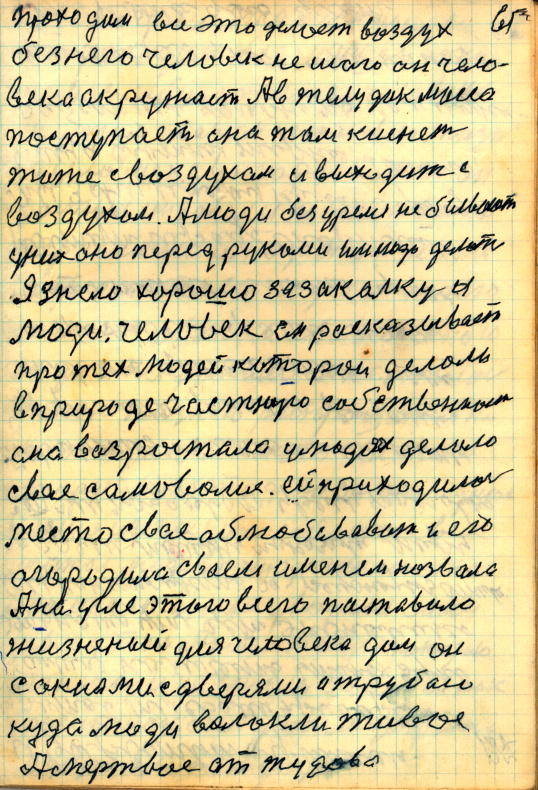 проходам все это делает воздух
без него человек не шаго он чело-
века окружает А в желудак масса
поступает она там киснет
тоже с воздухам и выходит с
воздухам. А люди без уреме не бывают
у них оно перед руками делат
Я знаю хорошо за закалку и
люди. человек ем расказывает
про тех людей которои делали
в природе частную собственност
она возростала у людях делала
свае самоволия. ей приходилос
место свае облюбавават и его
огородила своем именем назвала
А на угле этого всего поставила
жизненый для человека дом он
с окнами с дверями и трубаю
куда люди волокли живое
А мертвое от тудова